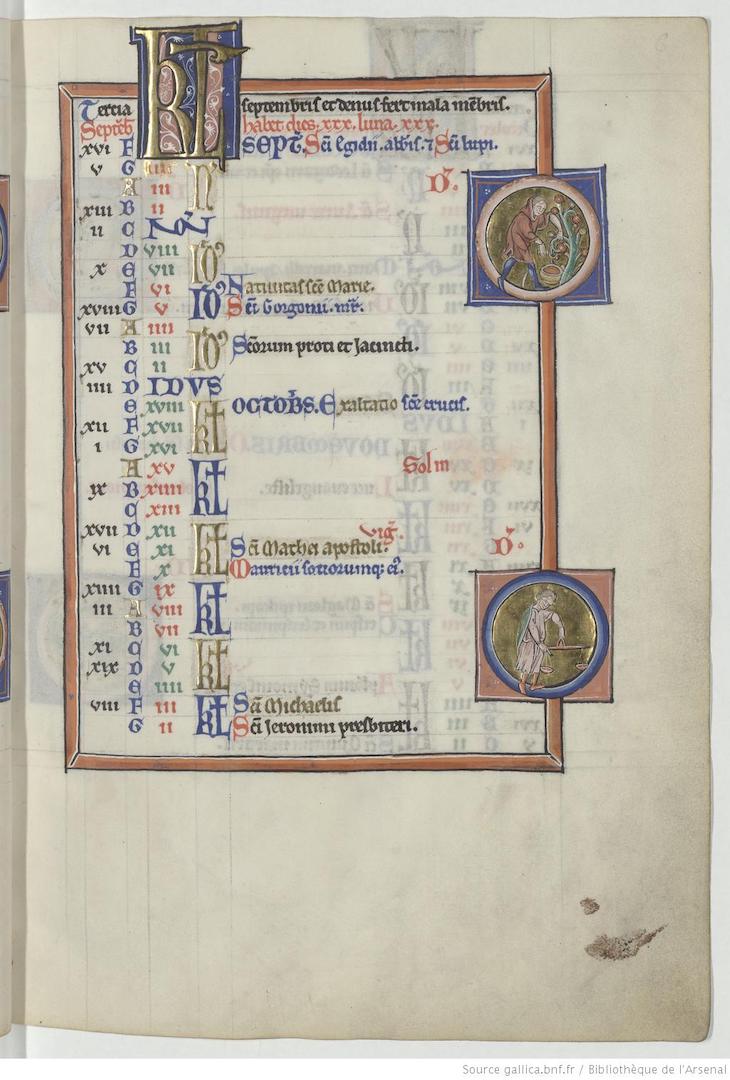 KL
Tercia septembris et denus fert mala mēbris.
Septēb habet dies .xxx. luna .xxx.
xvi F SEPT̄. Sc̄i Egidii. abb̄is. ⁊ Sc̄i lupi.
v G iiii N̄ D'.
A iii
xiii B ii
ii C NON̄
D viii Id'
x E vii
F vi Natiuitas sc̄e Marie.
xviii G v Id' Sc̄i Gorgonii. mr̄.
vii A iiii
B iii Id' Sc̄orum proti et Jacincti.
xv C ii
iiii D IDVS
E xviii kł OCTOB̄S. Exaltacio sc̄e crucis.
xii F xvii
i G xvi
A xv kł Sol in
ix B xiiii
C xiii
xvii D xii kł viḡ.
vi E xi Sc̄i Mathei apostoli. D'.
F x Mauricii sociorumq; ei'.
xiiii G ix kł
iii A viii
B vii
xi C vi kł
xix D v
E iiii
viii F iii kł Sc̄i Michaelis
G ii Sc̄i Jeronimi presbiteri.
Source gallica.bnf.fr / Bibliothèque de l'Arsenal